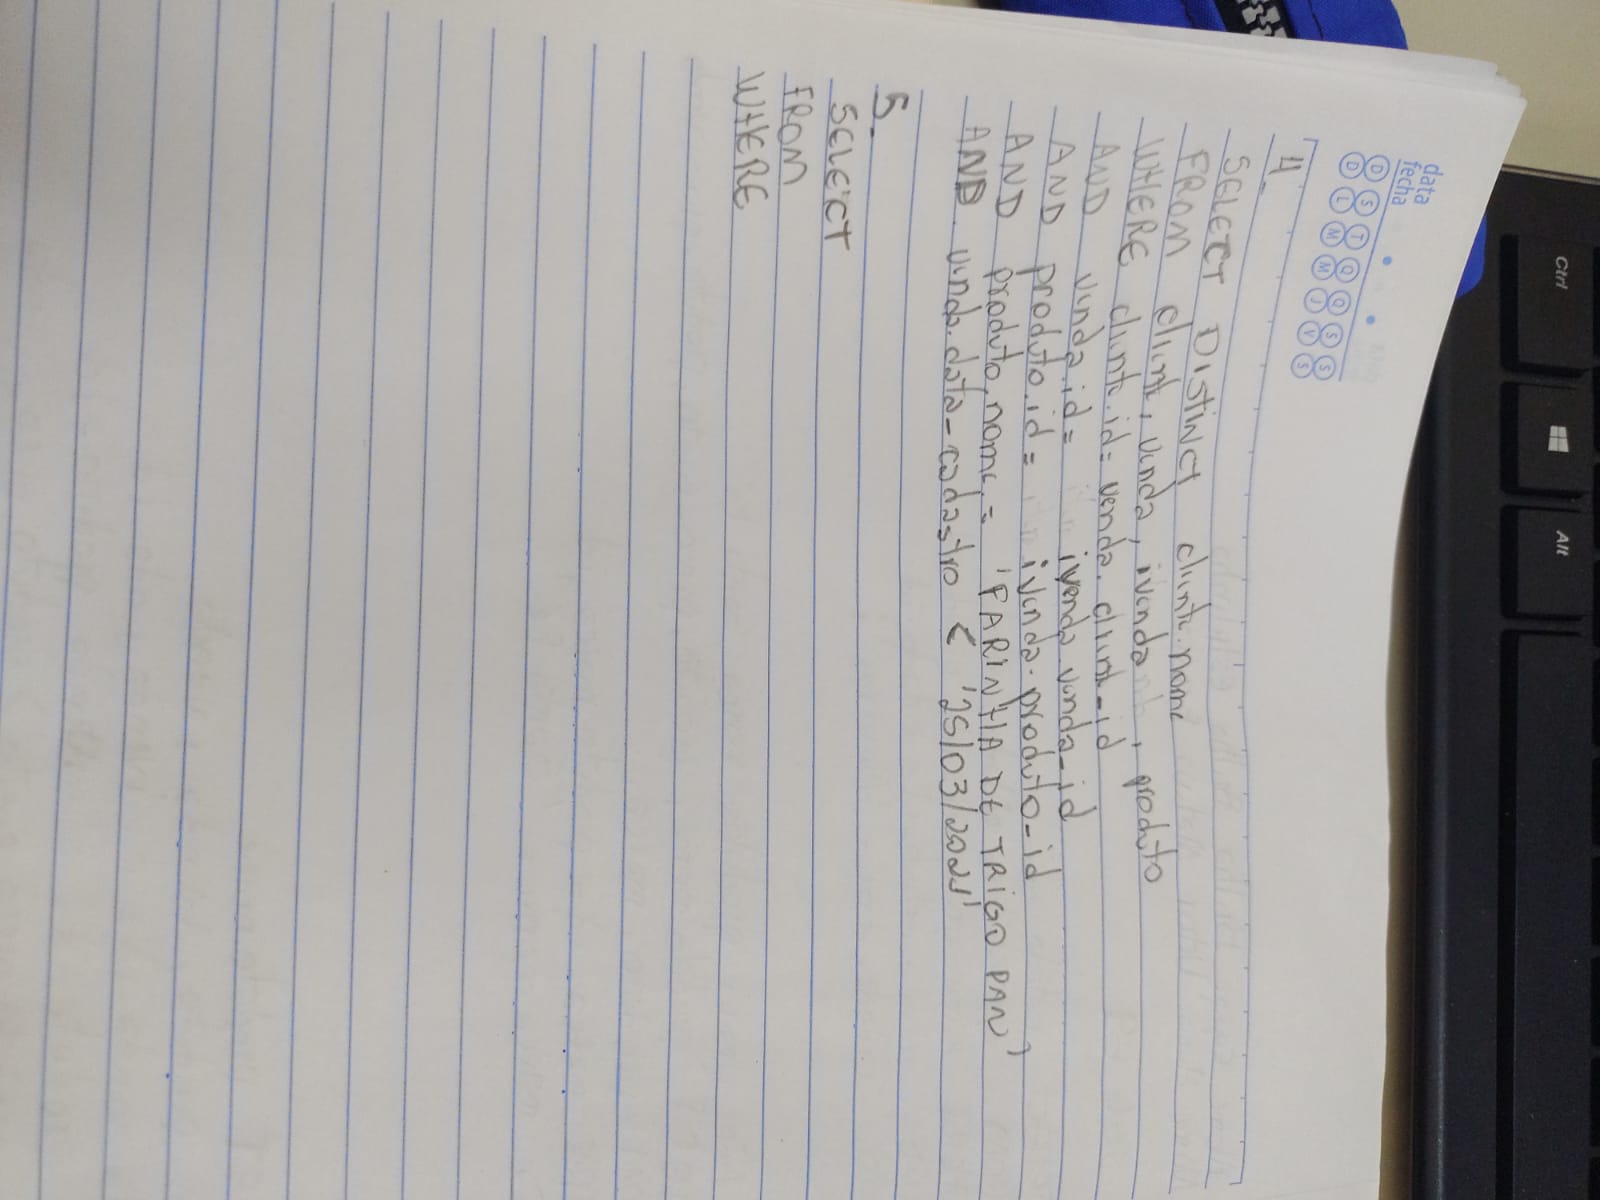 data
fecha
D S T Q Q S S
D L M M J V S
4.
SELECT DISTINCT cliente.nome
FROM cliente, venda, ivenda, produto
WHERE cliente.id = venda.cliente_id
AND venda.id = ivenda.venda_id
AND produto.id = ivenda.produto_id
AND produto.nome = 'FARINHA DE TRIGO PAN'
AND venda.data_cadastro < '25/03/2021'
5.
SELECT
FROM
WHERE
Ctrl
Alt